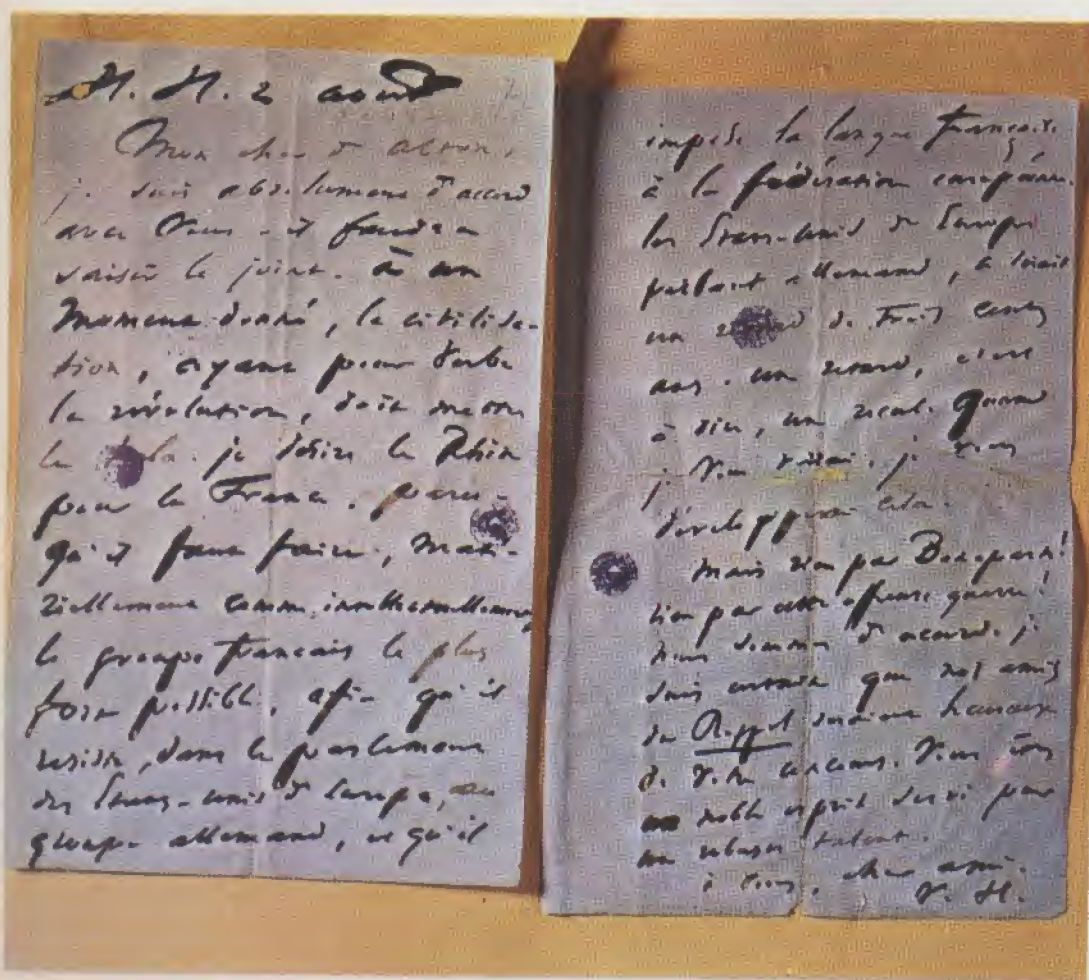 H. H. 2 août
Mon cher d'Alton,
je suis absolument d'accord
avec vous. il faudra
saisir le joint. à un
moment donné, la civilisa-
tion, ayant pour verbe
la révolution, doit mettre
le holà. je désire le Rhin
pour la France, parce
qu'il faut faire, maté-
riellement comme intellectuellement,
le groupe français le plus
fort possible, afin qu'il
résiste, dans le parlement
des États-unis d'Europe, au
groupe allemand, et qu'il
impose la langue française
à la fédération européenne.
les États-unis d'Europe
parlant allemand, ce serait
un retard de trois cents
ans. un retard, c'est
à dire, un recul. Quand
je vous verrai, je vous
développerai cela.
Mais rien par Bonaparte!
rien par cette affreuse guerre!
nous sommes d'accord. je
suis certain que nos amis
du Rappel seraient heureux
de votre concours. Vous êtes
un noble esprit servi par
un robuste talent.
à vous, cher ami.
V. H.